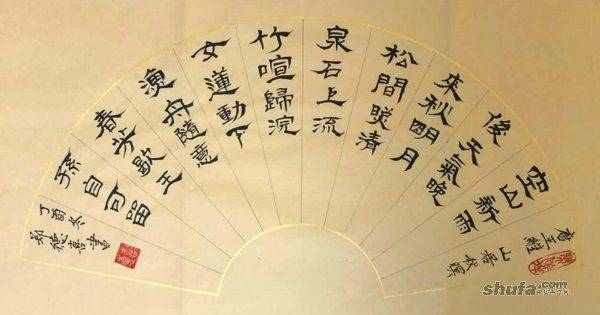 唐王維 山居秋暝
空山新雨
後天氣晚
來秋明月
松間照清
泉石上流
竹喧歸浣
女蓮動下
漁舟隨意
春芳歇王
孫自可留
丁酉冬
德喜書
shufa.com